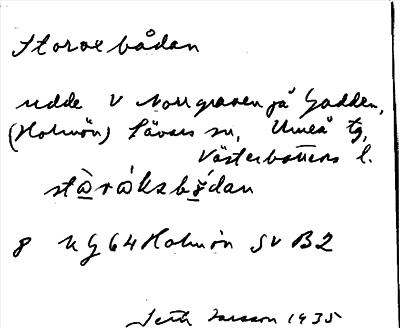 Storoxbådan
udde V Norrgraven på Gadden,
(Holmön) Sävars sn, Umeå tg,
Västerbottens l.
8 KG 64 Holmön SV B2
Larsson 1935